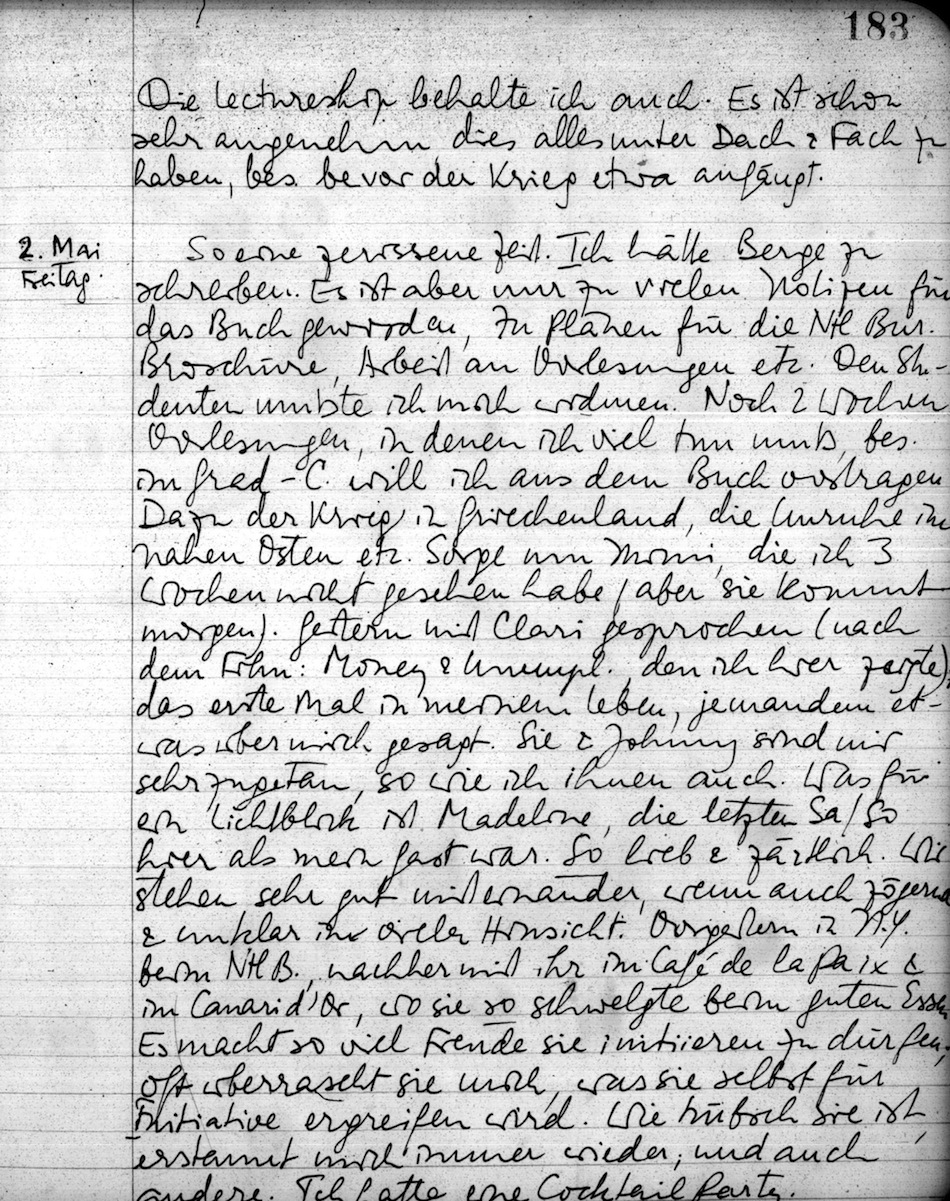 183
Die Lectureship behalte ich auch. Es ist schon
sehr angenehm dies alles unter Dach & Fach zu
haben, bes. bevor der Krieg etwa anfängt.
2. Mai
Freitag.
So eine zerissene Zeit. Ich hätte Berge zu
schreiben. Es ist aber nur zu vielen Notizen für
das Buch geworden, zu Plänen für die Ntl Bur.
Broschüre, Arbeit an Vorlesungen etc. Den Stu-
denten musste ich mich widmen. Noch 2 Wochen
Vorlesungen, in denen ich viel tun muss, bes.
im Grad-C. will ich aus dem Buch vortragen
Dazu der Krieg in Griechenland, die Unruhe im
nahen Osten etc. Sorge um Mimi, die ich 3
Wochen nicht gesehen habe (aber sie kommt
morgen). Gestern mit Clari gesprochen (nach
dem Film: Money & Unempl., den ich hier zeigte),
das erste Mal in meinem Leben, jemandem et-
was über mich gesagt. Sie & Johnny sind mir
sehr zugetan, so wie ich ihnen auch. Was für
ein Lichtblick ist Madeline, die letzten Sa/So
hier als mein Gast war. So lieb & zärtlich. Wir
stehen sehr gut miteinander, wenn auch zögernd
& unklar in vieler Hinsicht. Vorgestern in N.Y.
beim Ntl B., nachher mit ihr im Café de la Paix &
im Canari d'Or, wo sie so schwelgte beim guten Essen
Es macht so viel Freude sie initiieren zu dürfen.
Oft überrascht sie mich, was sie selbst für
Initiative ergreifen wird. Wie hübsch sie ist,
erstaunt mich immer wieder, und auch
andere. Ich hatte eine Cocktail Party